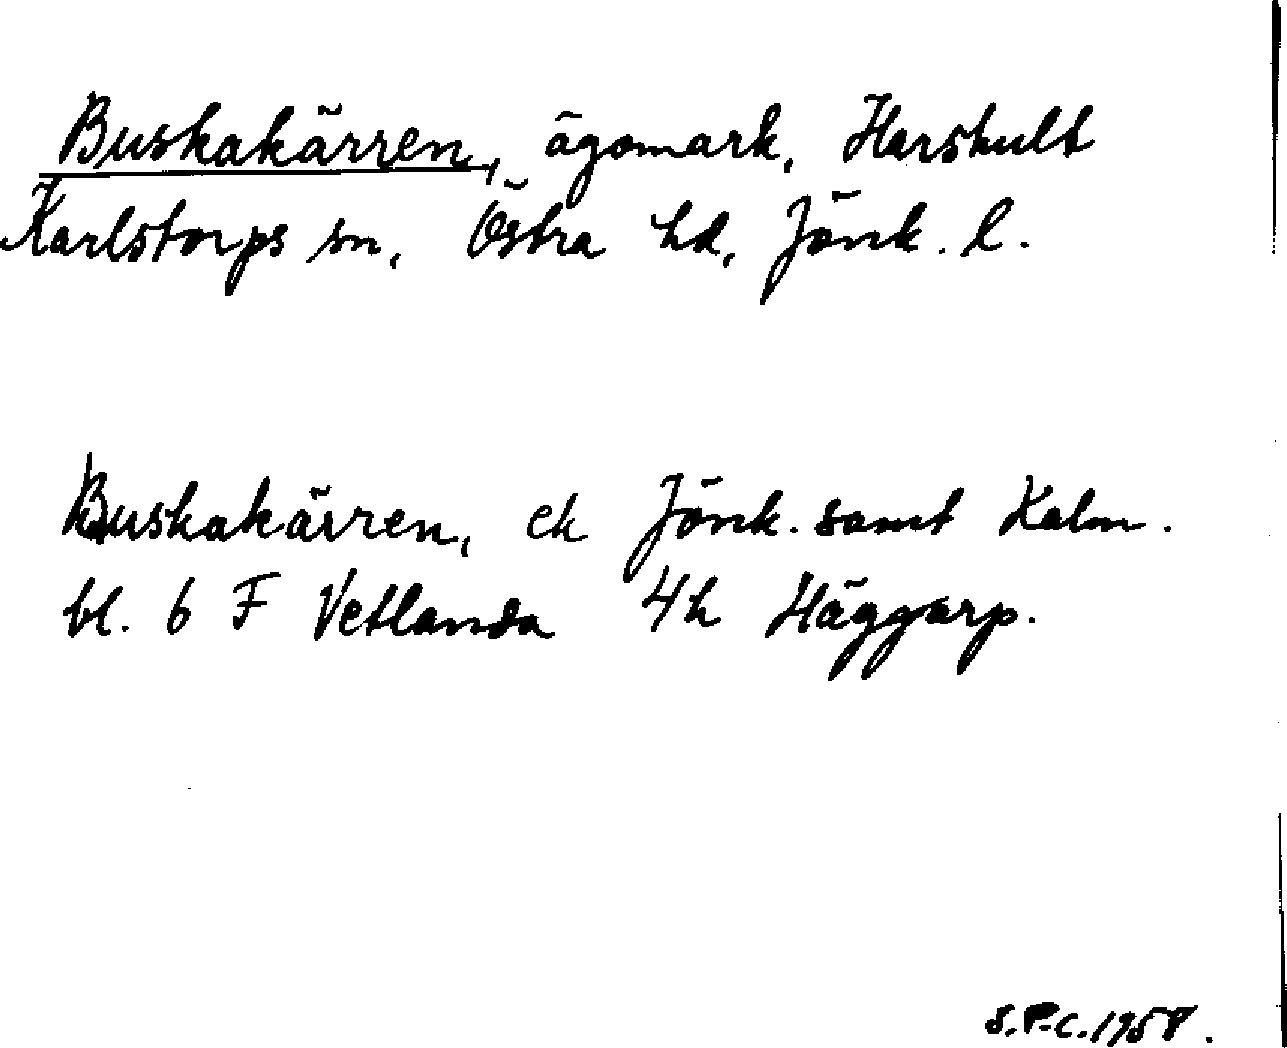 Buskakärren, ägomark, Harshult
Karlstorps sn, Östra hd, Jönk. l.
Buskakärren, ek Jönk. samt Kalm.
bl. 6 F Vetlanda 4h Häggarp.
S.P-C. 1958.